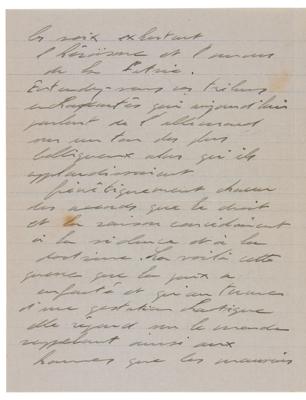 les voix exaltant
l'héroïsme et l'amour
de la Patrie.
Entendez-vous ces tribuns
qui aujourd'hui
parlent de l'allemand
sur un ton des plus
belliqueux alors qu'ils
applaudissaient
frénétiquement chacun
des accords que le droit
et la raison concédaient
à la violence et à la
doctrine. La voilà cette
guerre que la paix a
enfantée et qu'au terme
d'une gestation
elle répand sur le monde
rappelant ainsi aux
hommes que les mauvais